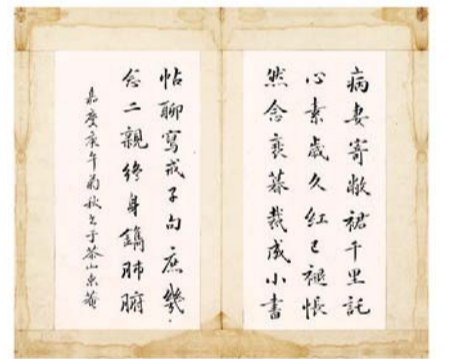 病妻寄敝裙千里託
心素歲久紅已褪悵
然念衰暮裁成小書
帖聊寫戒子句庶幾
念二親終身鐫肺腑
嘉慶庚午菊秋書于茶山東菴